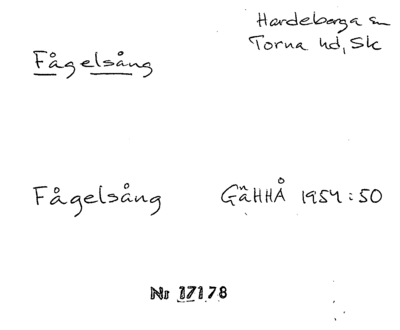 Hardeberga sn
Torna hd, Sk
Fågelsång
Fågelsång GäHHÅ 1954:50
Nr 17178